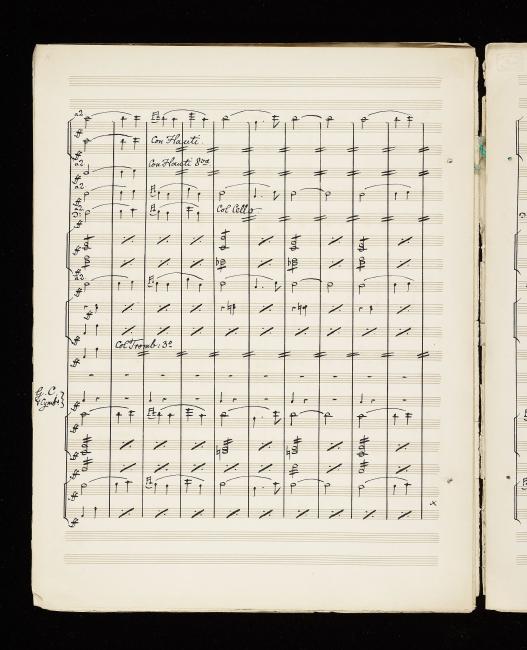 a2
Con Flauti
a2
Con Flauti 8va
a2
a2
Col Cello
a2
Col Tromb: 3o
G.C.
x